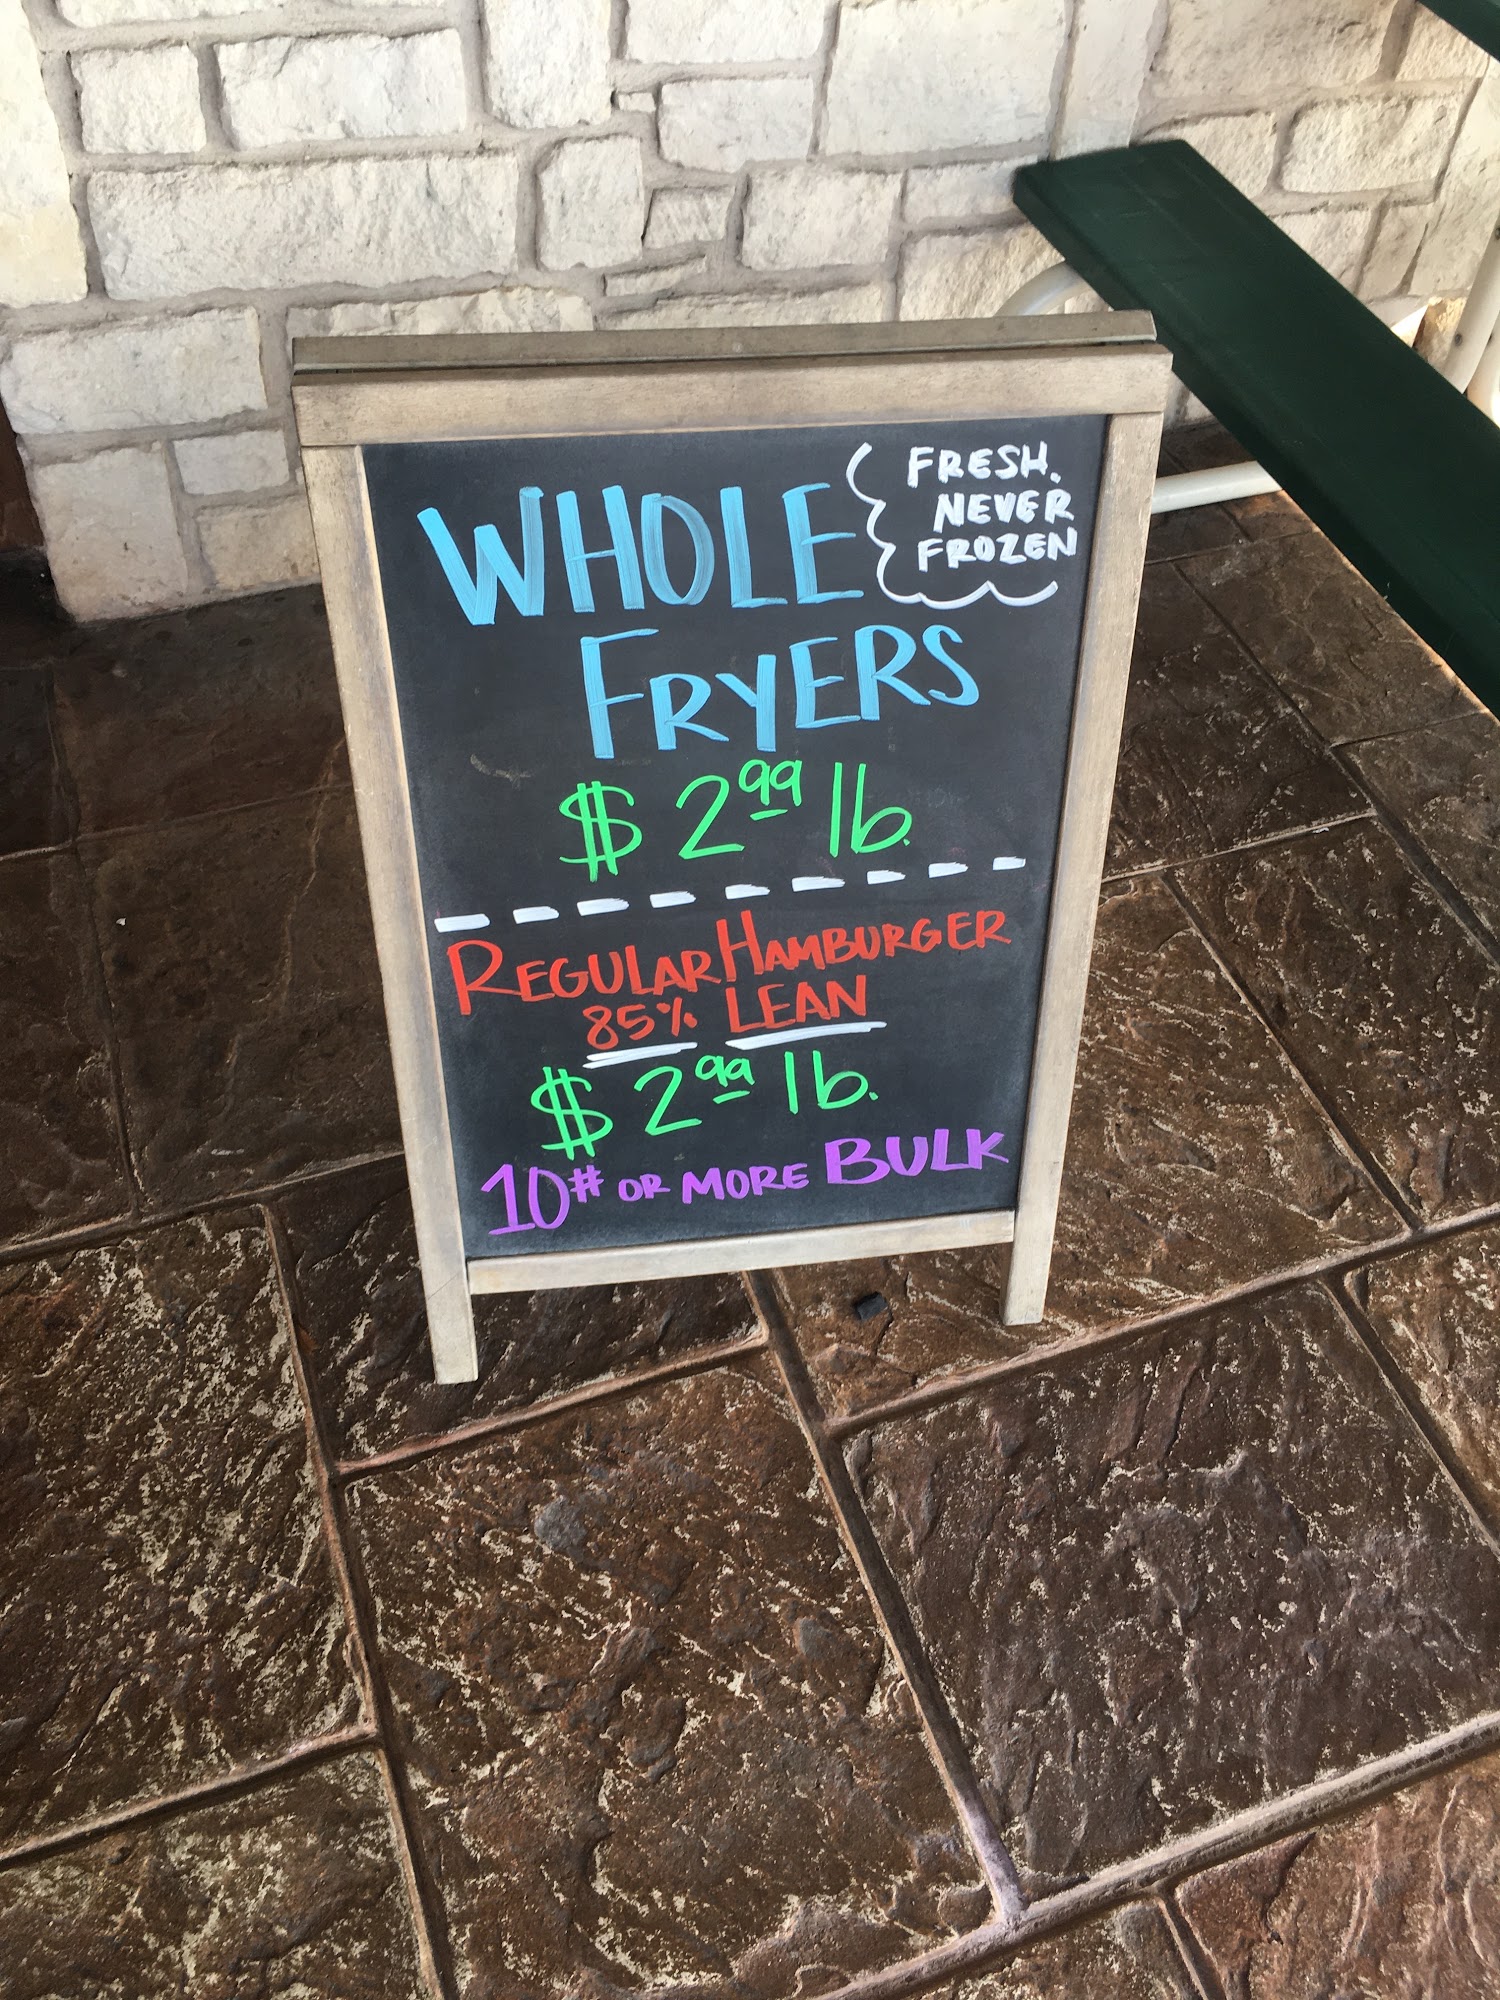 FRESH.
NEVER
FROZEN
WHOLE
FRYERS
$2.99 lb.
REGULAR HAMBURGER
85% LEAN
$2.99 lb.
10# OR MORE BULK